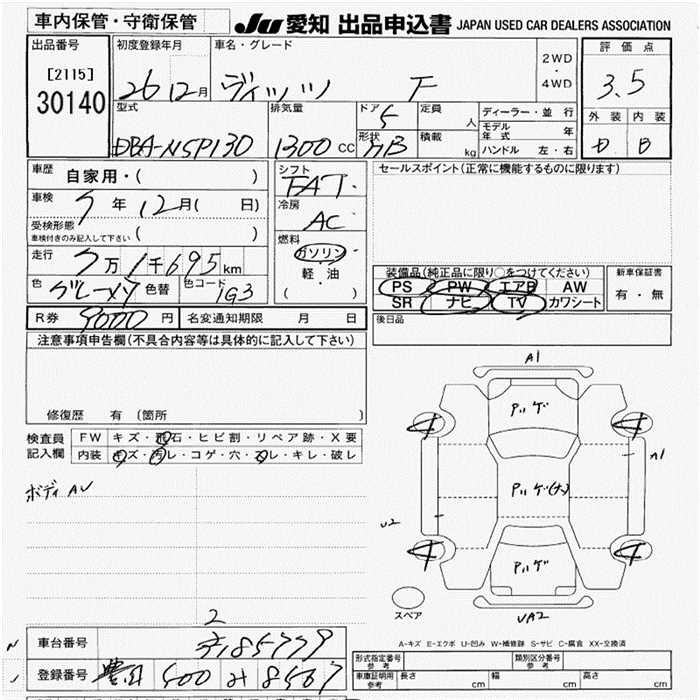 車内保管・守衛保管
JU 愛知 出品申込書 JAPAN USED CAR DEALERS ASSOCIATION
出品番号 初度登録年月 車名・グレード 2WD・4WD 評価点
[2115]
30140 26 12月 ヴィッツ F 3.5
型式 排気量 ドア 5 定員 人 ディーラー・並行 外装 内装
DBA-NSP130 1300 CC 形状 HB 積載 kg モデル年式 年 D B
ハンドル 左・右
車歴 自家用・( ) シフト FAT セールスポイント(正常に機能するものに限ります)
車検 年 12月( 日) 冷房 AC
受検形態 車検付きのみ記入して下さい ( )
走行 万 1千695km 燃料 ガソリン・軽・油 ( )
色 グレーメタ 色替 色コード 1G3
装備品(純正品に限り〇をつけてください) 新車保証書
PS PW エアB AW 有・無
SR ナビ TV カワシート
R券 9000円 名変通知期限 月 日 後日品
注意事項申告欄(不具合内容等は具体的に記入して下さい)
修復歴 有 (箇所 )
検査員記入欄 FW キズ・飛石・ヒビ割・リペア跡・X要
内装 キズ・汚レ・コゲ・穴・スレ・キレ・破レ
A1
Pルゲ
A1
ボディ AU
Pルゲ(ナ)
U2
Pルゲ
スペア UA2
2
A-キズ E-エクボ U-凹み W-補修跡 S-サビ C-腐食 XX-交換済
車台番号 85779
登録番号 豊田 500 み 8567
形式指定番号 参考 類別区分番号 参考
車庫証明用 参考 長さ cm 幅 cm 高さ cm